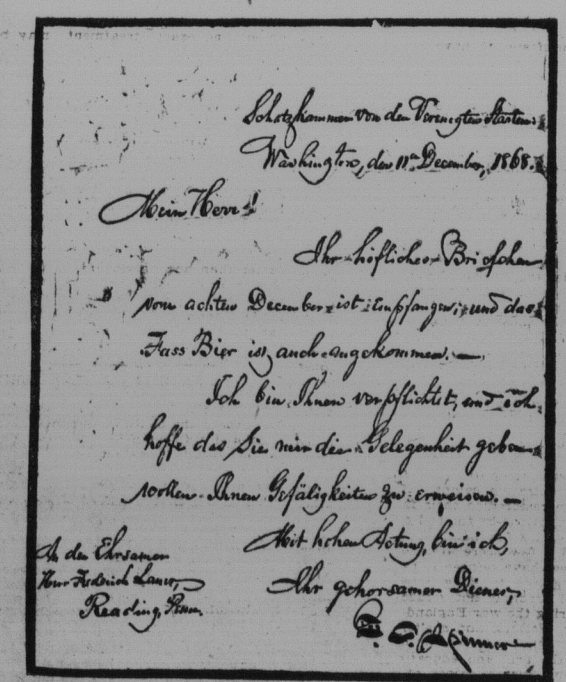 Schatzkammer von den Vereinigten Staaten:
Washington, den 11ten December, 1868.
Mein Herr!
Ihr höflicher Briefchen
vom achten December ist empfangen; und das
Fass Bier ist auch angekommen. —
Ich bin Ihnen verpflichtet, und ich
hoffe das Sie mir die Gelegenheit geben
wollen Ihnen Gefäligkeiten zu erweisen. —
Mit hohen Actung, bin ich,
Ihr gehorsamer Diener,
An den Ehrsamen
Herr Fredrich Lauer,
Reading, Penn.
Spinner